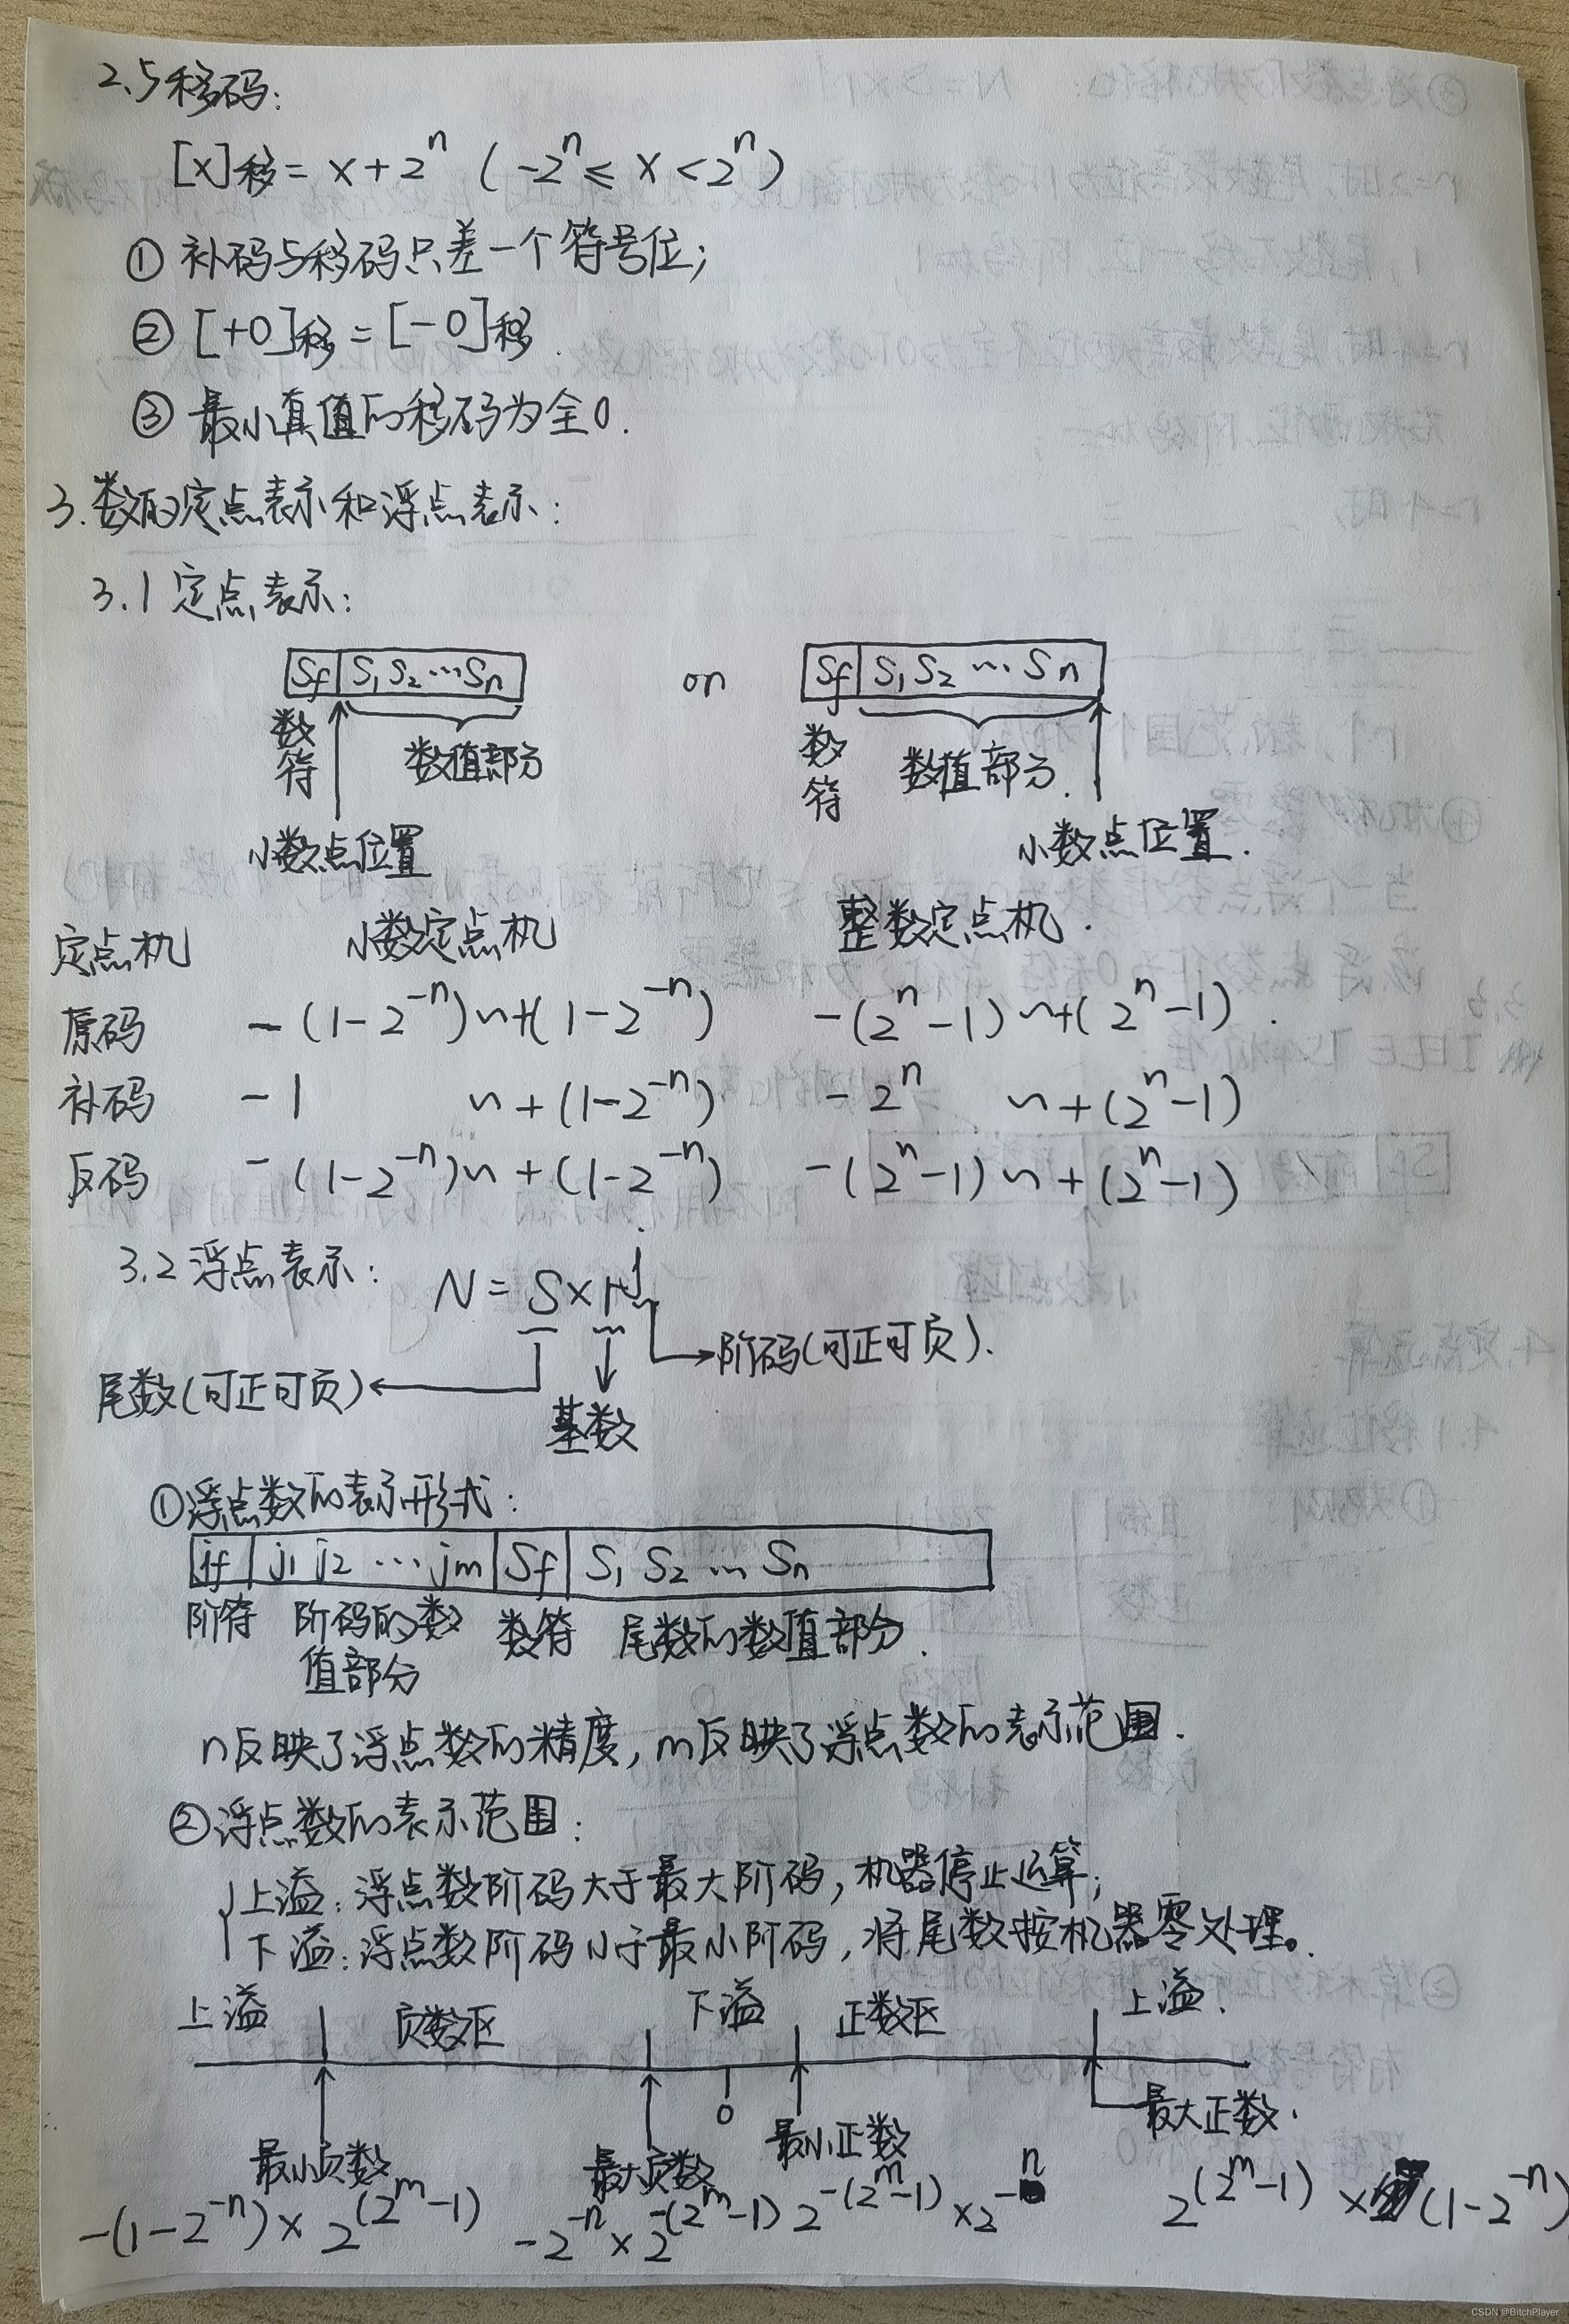 2.5 移码:
[x]移 = x + 2^n ( -2^n ≤ x < 2^n )
① 补码与移码只差一个符号位;
② [+0]移 = [-0]移.
③ 最小真值的移码为全0.
3. 数的定点表示和浮点表示:
3.1 定点表示:
Sf S₁ S₂ … Sn or Sf S₁ S₂ … Sn
数符 数值部分 数符 数值部分.
小数点位置 小数点位置.
定点机 小数定点机 整数定点机.
原码 -(1-2^-n) ~ +(1-2^-n) -(2^n-1) ~ +(2^n-1).
补码 -1 ~ +(1-2^-n) -2^n ~ +(2^n-1)
反码 -(1-2^-n) ~ +(1-2^-n) -(2^n-1) ~ +(2^n-1)
3.2 浮点表示: N = S × r^j
阶码(可正可负).
尾数(可正可负)
基数
① 浮点数的表示形式:
jf j₁ j₂ … jm Sf S₁ S₂ … Sn
阶符 阶码的数值部分 数符 尾数的数值部分.
n反映了浮点数的精度, m反映了浮点数的表示范围.
② 浮点数的表示范围:
上溢: 浮点数阶码大于最大阶码, 机器停止运算;
下溢: 浮点数阶码小于最小阶码, 将尾数按机器零处理。
上溢 负数区 下溢 正数区 上溢.
0 最大正数.
最小负数 最大负数 最小正数
-(1-2^-n) × 2^(2^m-1) -2^-n × 2^-(2^m-1) 2^-(2^m-1) × 2^-n 2^(2^m-1) × (1-2^-n)
CSDN @BitchPlayer